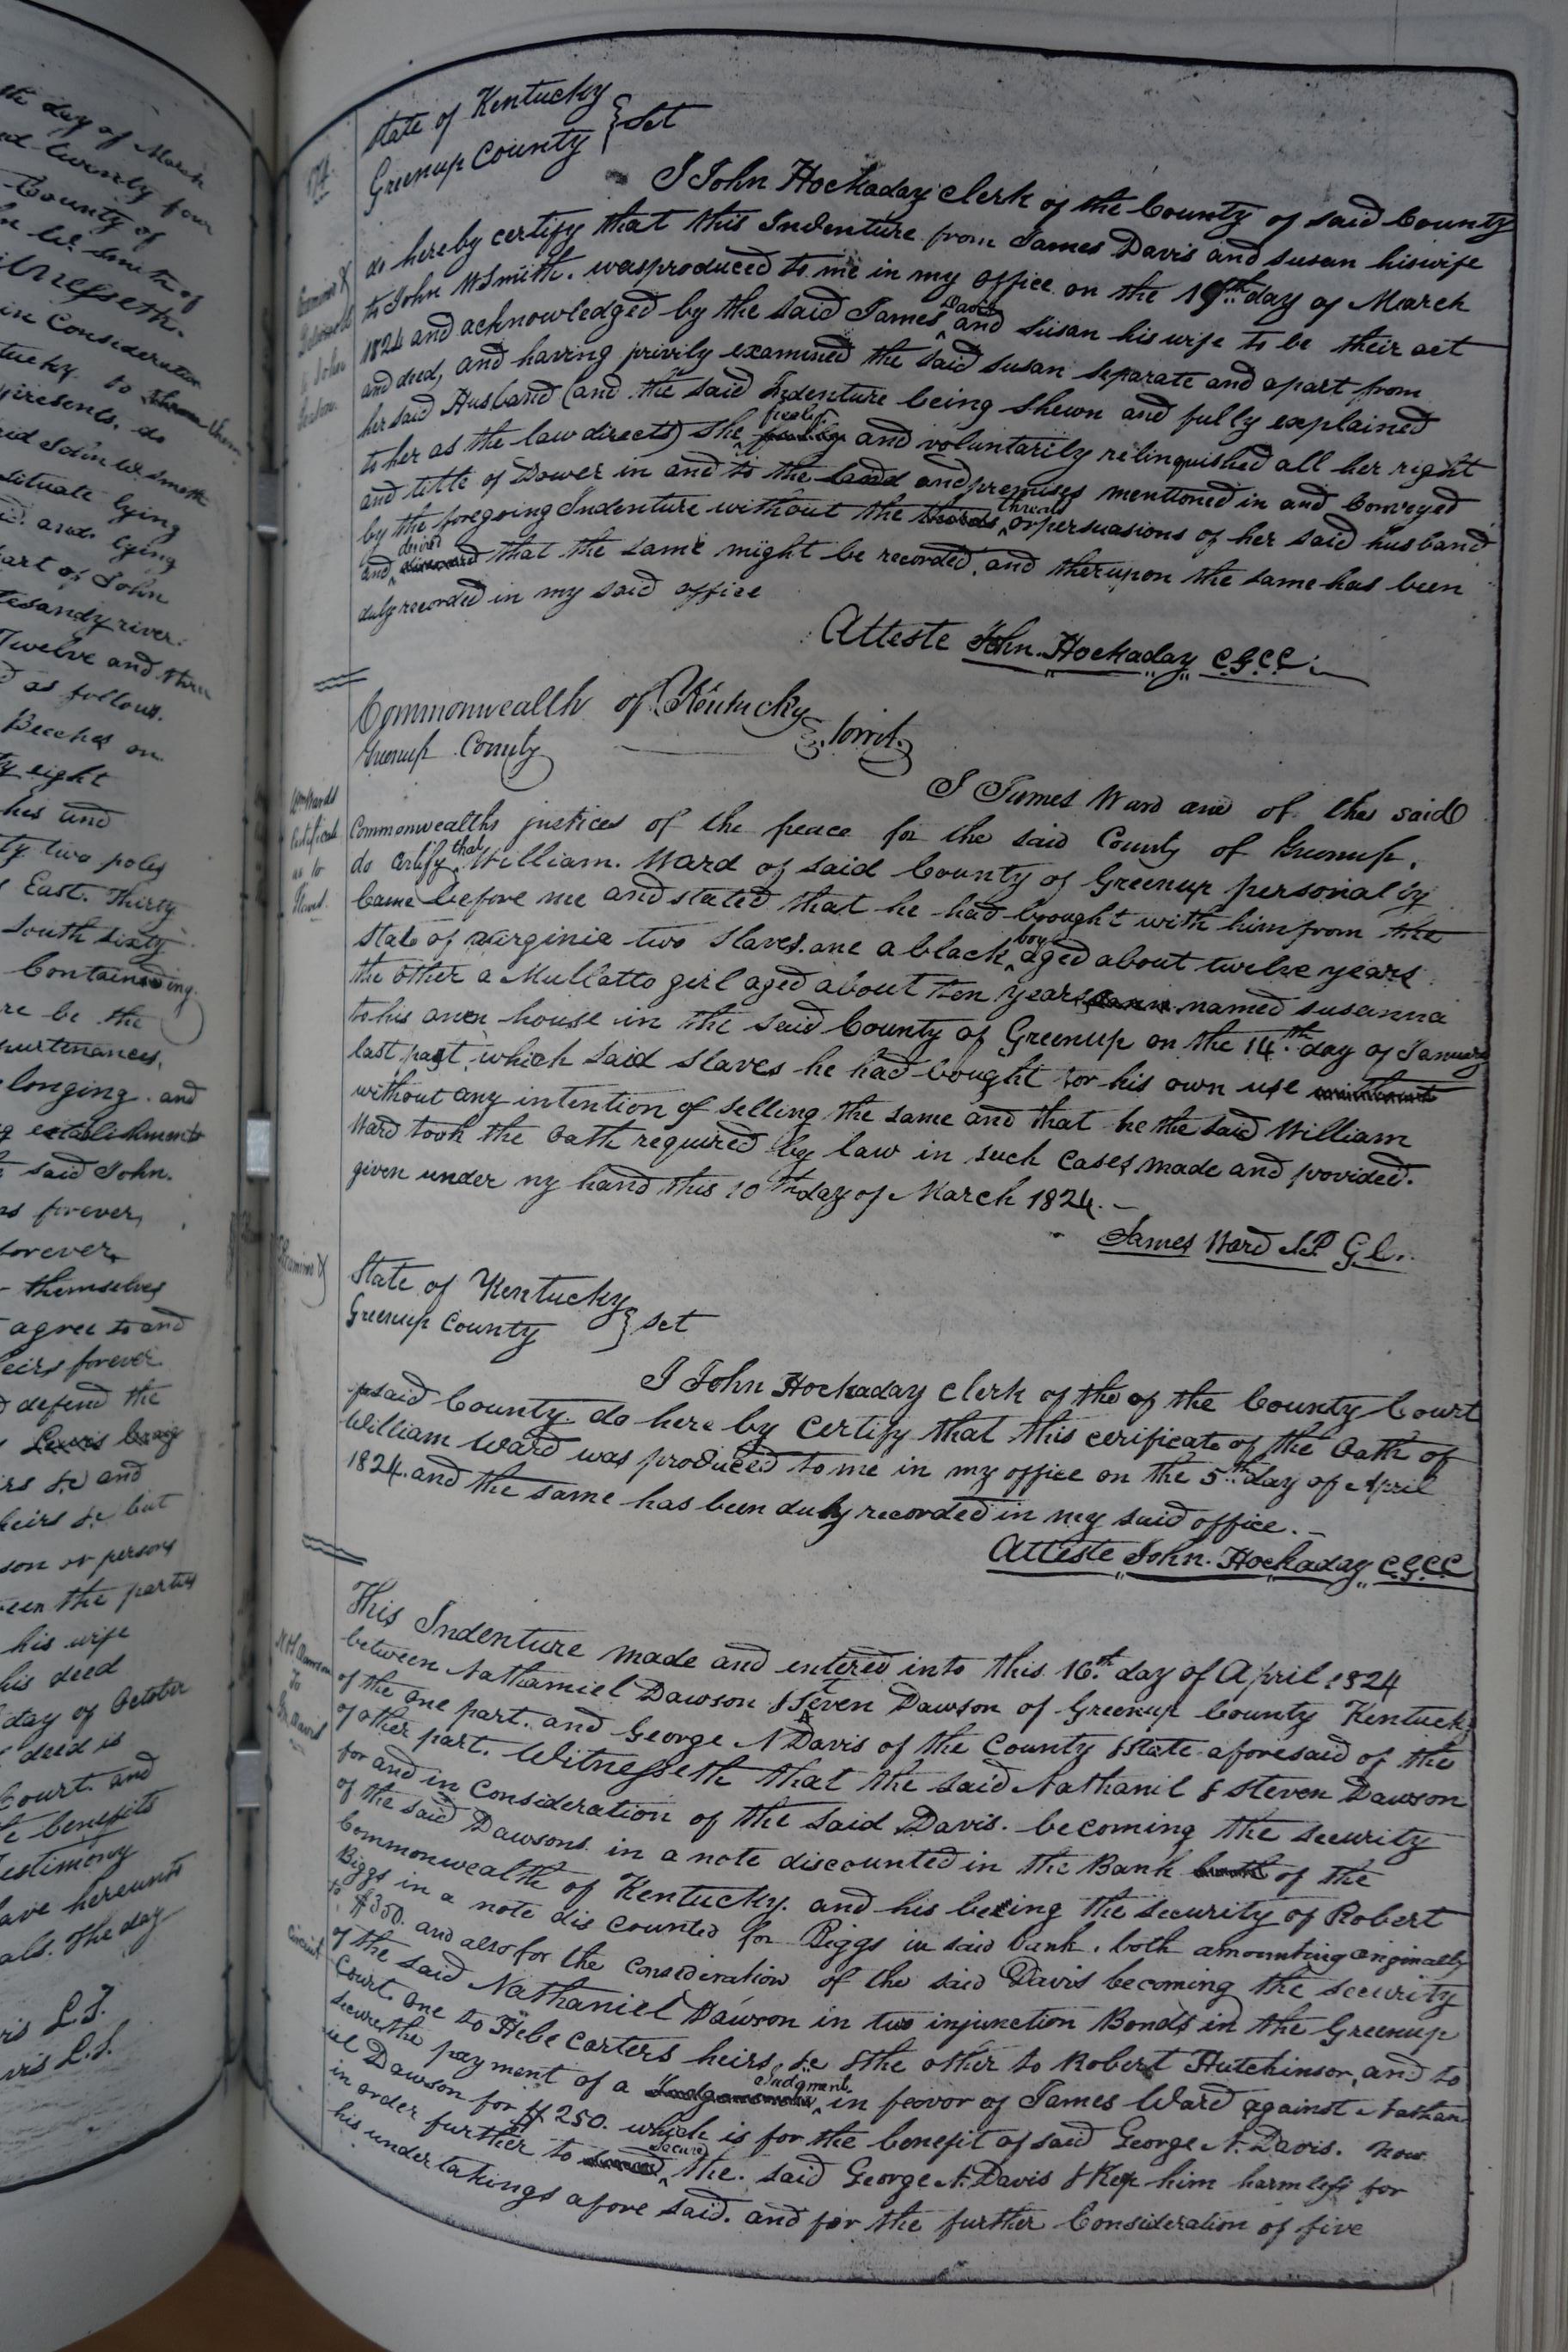 the day of March
and twenty four
County of
W. Smith of
Witnesseth.
in Consideration
tucky to them
presents, do
said John W. Smith
situate lying
and lying
part of John
tesandy river.
Twelve and three
as follows.
Beeches on
ty eight
hes and
ty two poles
East. Thirty
South sixty
Containing
re be the
purtenances,
longing. and
g establishments
said John.
rs forever,
forever
themselves
agree to and
eirs forever
defend the
Lewis Craig
irs &c and
heirs &c but
son or persons
een the partys
his wife
his deed
day of October
deed is
Court. and
e benefits
testimony
have hereunto
als. The day
vis L.S.
vis L.S.
State of Kentucky
Greenup County } Sct
I John Hockaday clerk of the County of said County
do hereby certify that this Indenture from James Davis and susan his wife
to John W Smith. was produced to me in my office on the 19th day of March
1824 and acknowledged by the said James Davis and susan his wife to be their act
and deed, and having privily examined the said susan separate and apart from
her said Husband (and the said Indenture being shewn and fully explained
to her as the law directs) she freely and voluntarily relinquished all her right
and title of Dower in and to the land and premises mentioned in and Conveyed
by the foregoing Indenture without the threats or persuasions of her said husband
and desired that the same might be recorded. and therupon the same has been
duly recorded in my said office
Atteste John. Hockaday C.G.C.C.
Commonwealth of Kentucky
Greenup County } Towit.
I James Ward one of the said
Wm Wards
Certificate
as to
Slaves.
Commonwealths justices of the peace for the said County of Greenup.
do certify that William. Ward of said County of Greenup personally
Came before me and stated that he had brought with him from the
State of virginia two slaves. one a black boy aged about twelve years
the other a Mullatto girl aged about ten years named susanna
to his own house in the said County of Greenup on the 14th day of January
last past, which said slaves he had bought for his own use
without any intention of selling the same and that he the said William
Ward took the Oath required by law in such cases made and provided.
given under my hand this 10th day of March 1824.
James Ward J.P G.C.
Examined
State of Kentucky
Greenup County } sct
I John Hockaday Clerk of the of the County Court
said County do here by Certify that this cerificate of the Oath of
William Ward was produced to me in my office on the 5th day of April
1824. and the same has been duly recorded in my said office.
Atteste John. Hockaday C.G.C.C
This Indenture made and entered into this 16th day of April 1824
between Nathaniel Dawson & Steven Dawson of Greenup County Kentucky
of the one part. and George N Davis of the County & State aforesaid of the
of other part. Witnesseth that the said Nathanil & Steven Dawson
for and in Consideration of the said Davis. becoming the security
of the said Dawsons in a note discounted in the Bank of the
Commonwealth of Kentucky. and his being the security of Robert
Biggs in a note dis counted for Biggs in said bank. both amounting originally
to $350. and also for the Consideration of the said Davis becoming the security
of the said Nathaniel Dawson in two injunction Bonds in the Greenup
Circuit
Court. One to Hebe Carters heirs &c & the other to Robert Hutchinson, and to
secure the payment of a Judgment in favor of James Ward against Nathan
iel Dawson for $250. which is for the benefit of said George N. Davis. Now
in order further to secure the. said George N. Davis & Kep him harmless for
his under takings afore said. and for the further Consideration of five